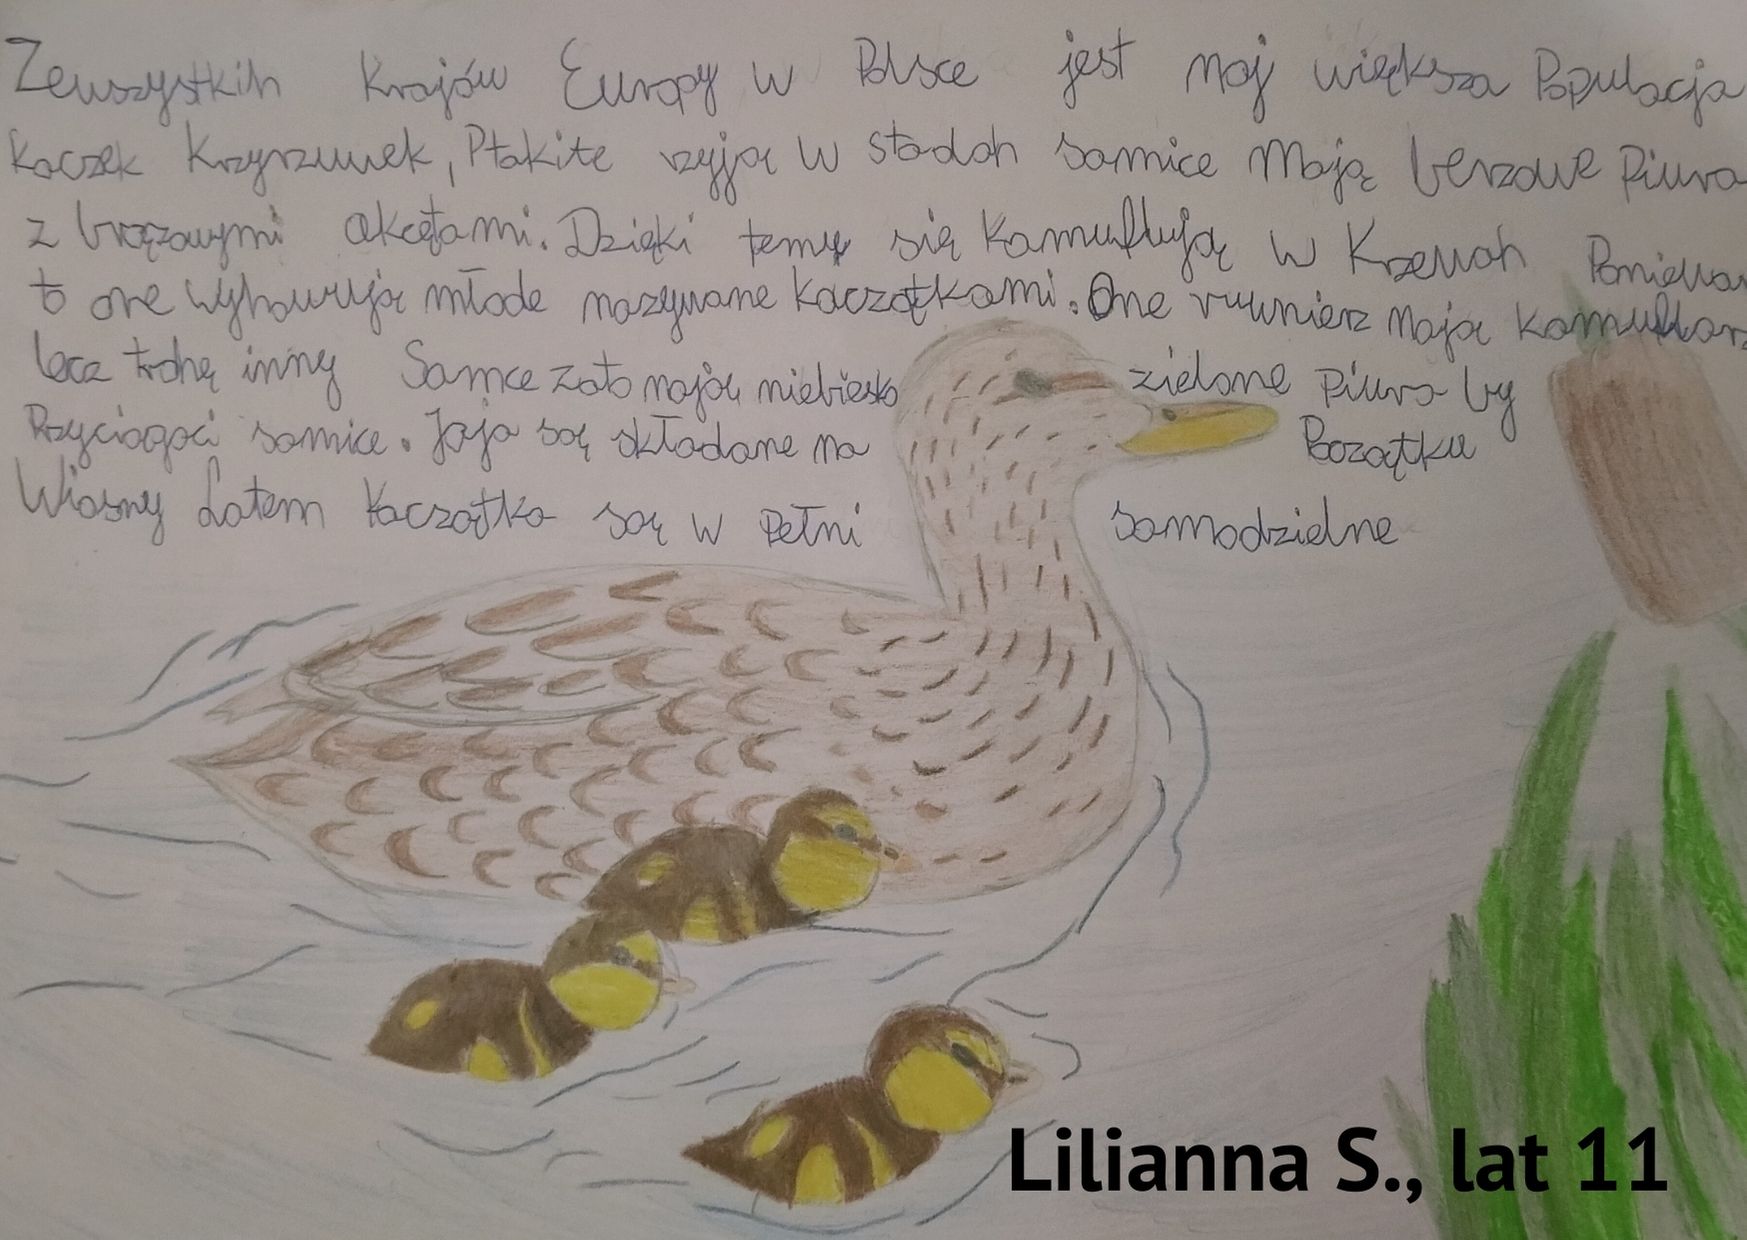 Zewszystkih Krajów Europy w Polsce jest naj większa Populacja
Kaczek Krzyrzuwek, Ptakite rzyją w stadah samice Mają berzowe Piura
z brązowymi akcętami. Dzięki temu się Kamuflują w Krzewah Poniewarz
to one wyhowują młode nazywane kaczątkami. One ruwnierz Mają Kamuflarz
lecz trohę inny Samce zato mają niebiesko zielone Piura by
Przyciągaci samice. Jaja są składane na Początku
Wiosny Latem Kaczątka są w Pełni samodzielne
Lilianna S., lat 11